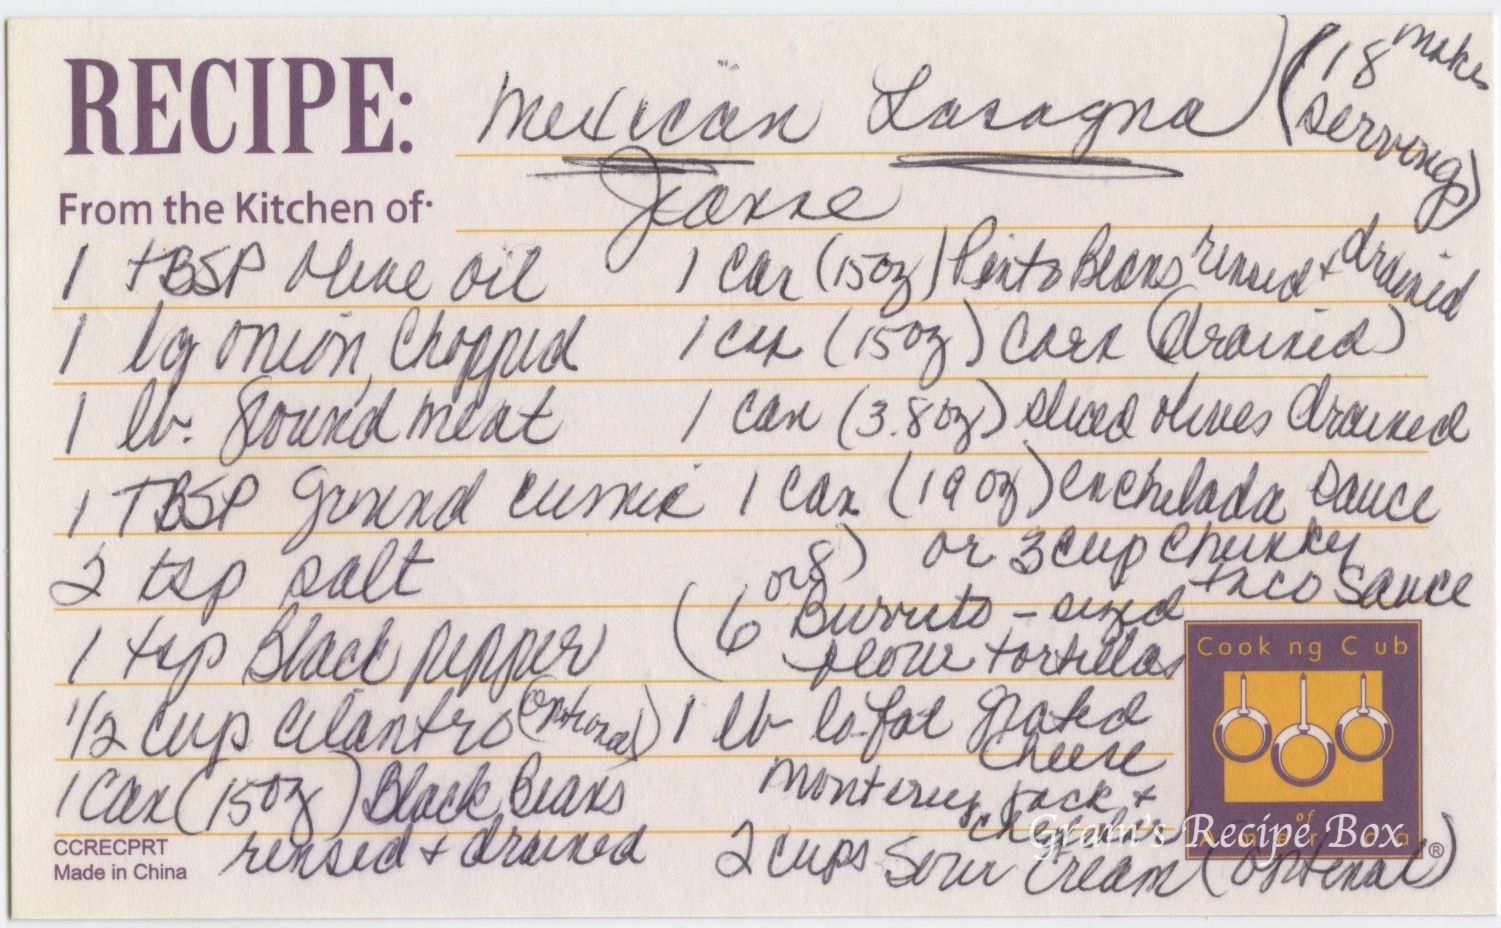 RECIPE: Mexican Lasagna (makes 18 servings)
From the Kitchen of: Joanne
1 TBSP olive oil
1 lg onion, chopped
1 lb. ground meat
1 TBSP ground cumin
2 tsp salt
1 tsp Black pepper
1/2 cup cilantro (optional)
1 can (15oz) Black Beans
rinsed + drained
1 can (15oz) Pinto Beans rinsed + drained
1 can (15oz) corn (drained)
1 can (3.8oz) sliced olives drained
1 can (19oz) enchelada sauce
or 3 cup chunky
taco sauce
(6 or 8) Burrito-sized
flour tortillas
1 lb lo-fat grated
cheese
Monterey Jack +
2 cups sour cream (optional)
CCRECPRT
Made in China
Cook ng C ub
of
Gram's Recipe Box
®